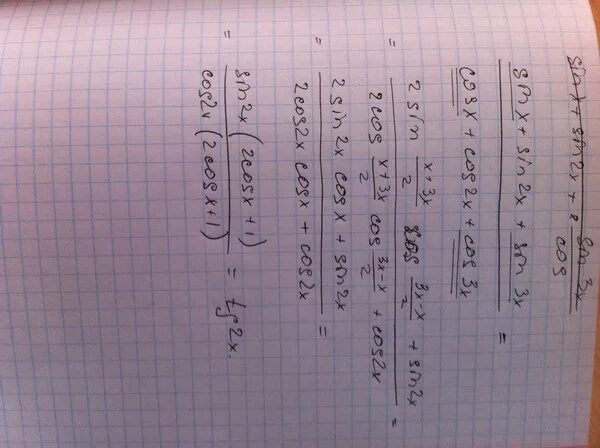 sin x + sin 2x + sin 3x
cos
sin x + sin 2x + sin 3x
cos x + cos 2x + cos 3x =
= 2 sin x+3x/2 cos 3x-x/2 + sin 2x
2 cos x+3x/2 cos 3x-x/2 + cos 2x =
= 2 sin 2x cos x + sin 2x
2 cos 2x cos x + cos 2x =
= sin 2x (2 cos x + 1)
cos 2x (2 cos x + 1) = tg 2x.